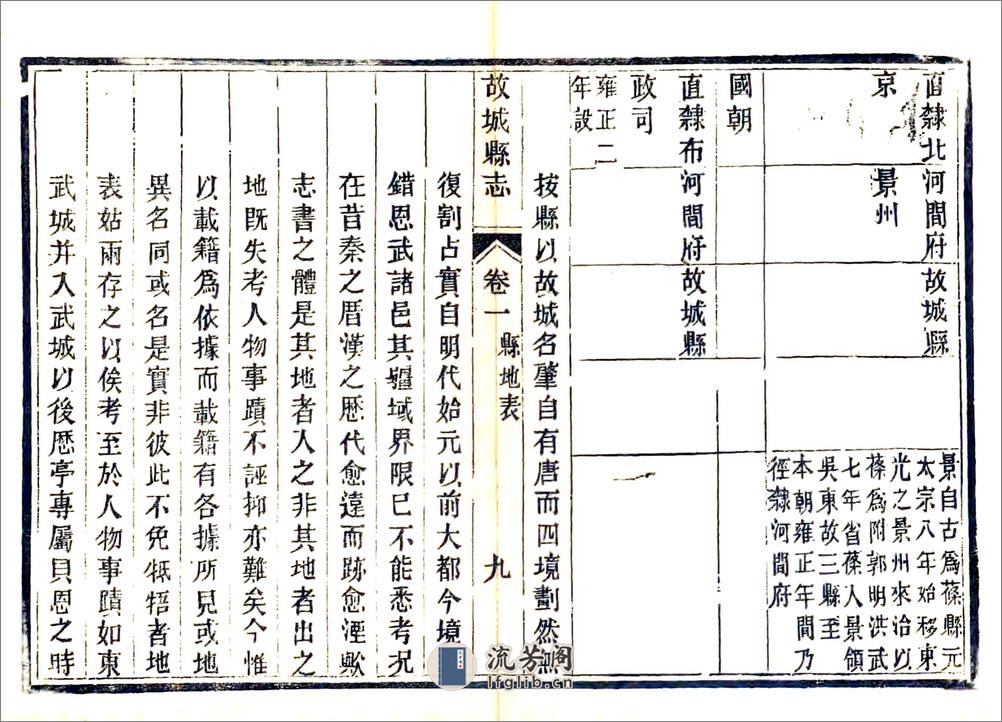 直隸北 河間府 故城縣
京 景州
景自古爲蓨縣元
太宗八年始移東
光之景州來治以
蓨爲附郭明洪武
七年省蓨入景領
吳東故三縣至
本朝雍正年間乃
徑隸河間府
國朝
直隸布 河間府 故城縣
政司
雍正二
年設
按縣以故城名肇自有唐而四境劃然無
故城縣志 卷一 縣地表 九
復割占實自明代始元以前大都今境
錯恩武諸邑其疆域界限已不能悉考況
在昔秦之厝漢之歷代愈遠而跡愈湮歟
志書之體是其地者人之非其地者出之
地既失考人物事蹟不誣抑亦難矣今惟
以載籍爲依據而載籍有各據所見或地
異名同或名是實非彼此不免牴牾者地
表姑兩存之以俟考至於人物事蹟如東
武城并入武城以後歷亭專屬貝恩之時
流芳閣
lfglib.cn